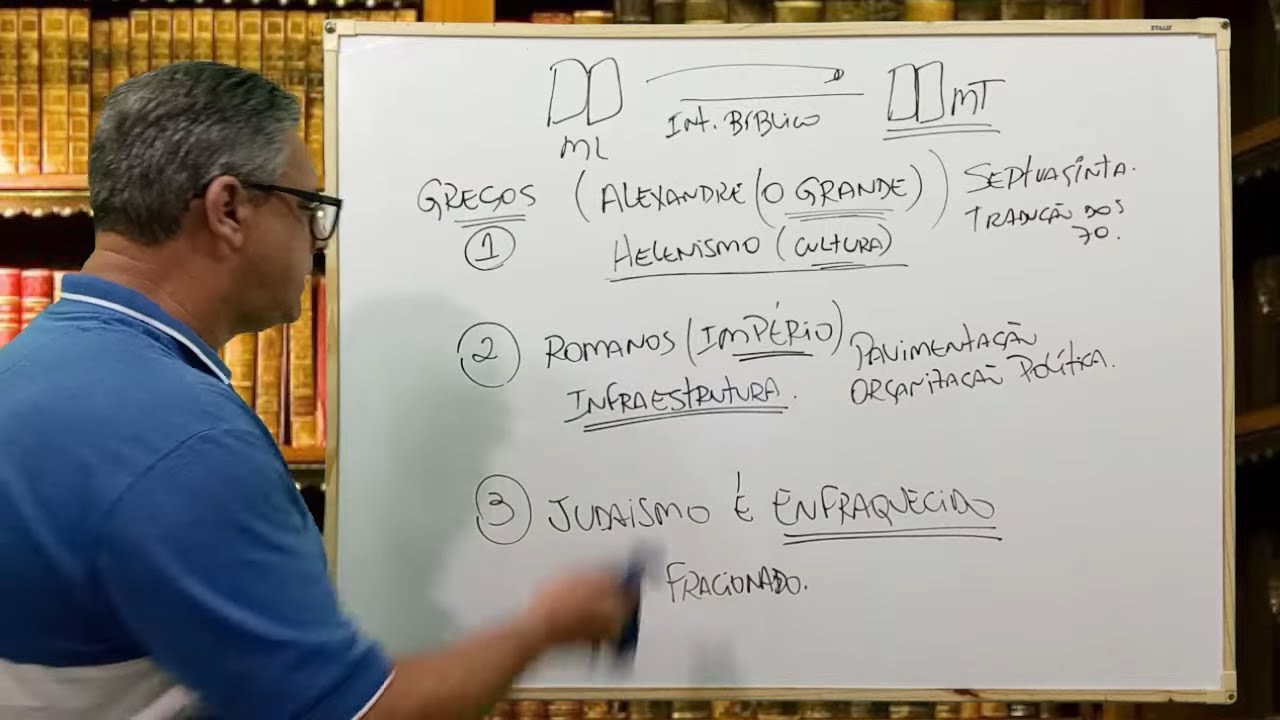 INT. BÍBLICO
ML
MT
GREGOS (ALEXANDRE (O GRANDE)) SEPTUAGINTA.
1 HELENISMO (CULTURA) TRADUÇÃO DOS
70.
2 ROMANOS (IMPÉRIO) PAVIMENTAÇÃO
INFRAESTRUTURA. ORGANIZAÇÃO POLÍTICA.
3 JUDAISMO É ENFRAQUECIDO
FRACIONADO.